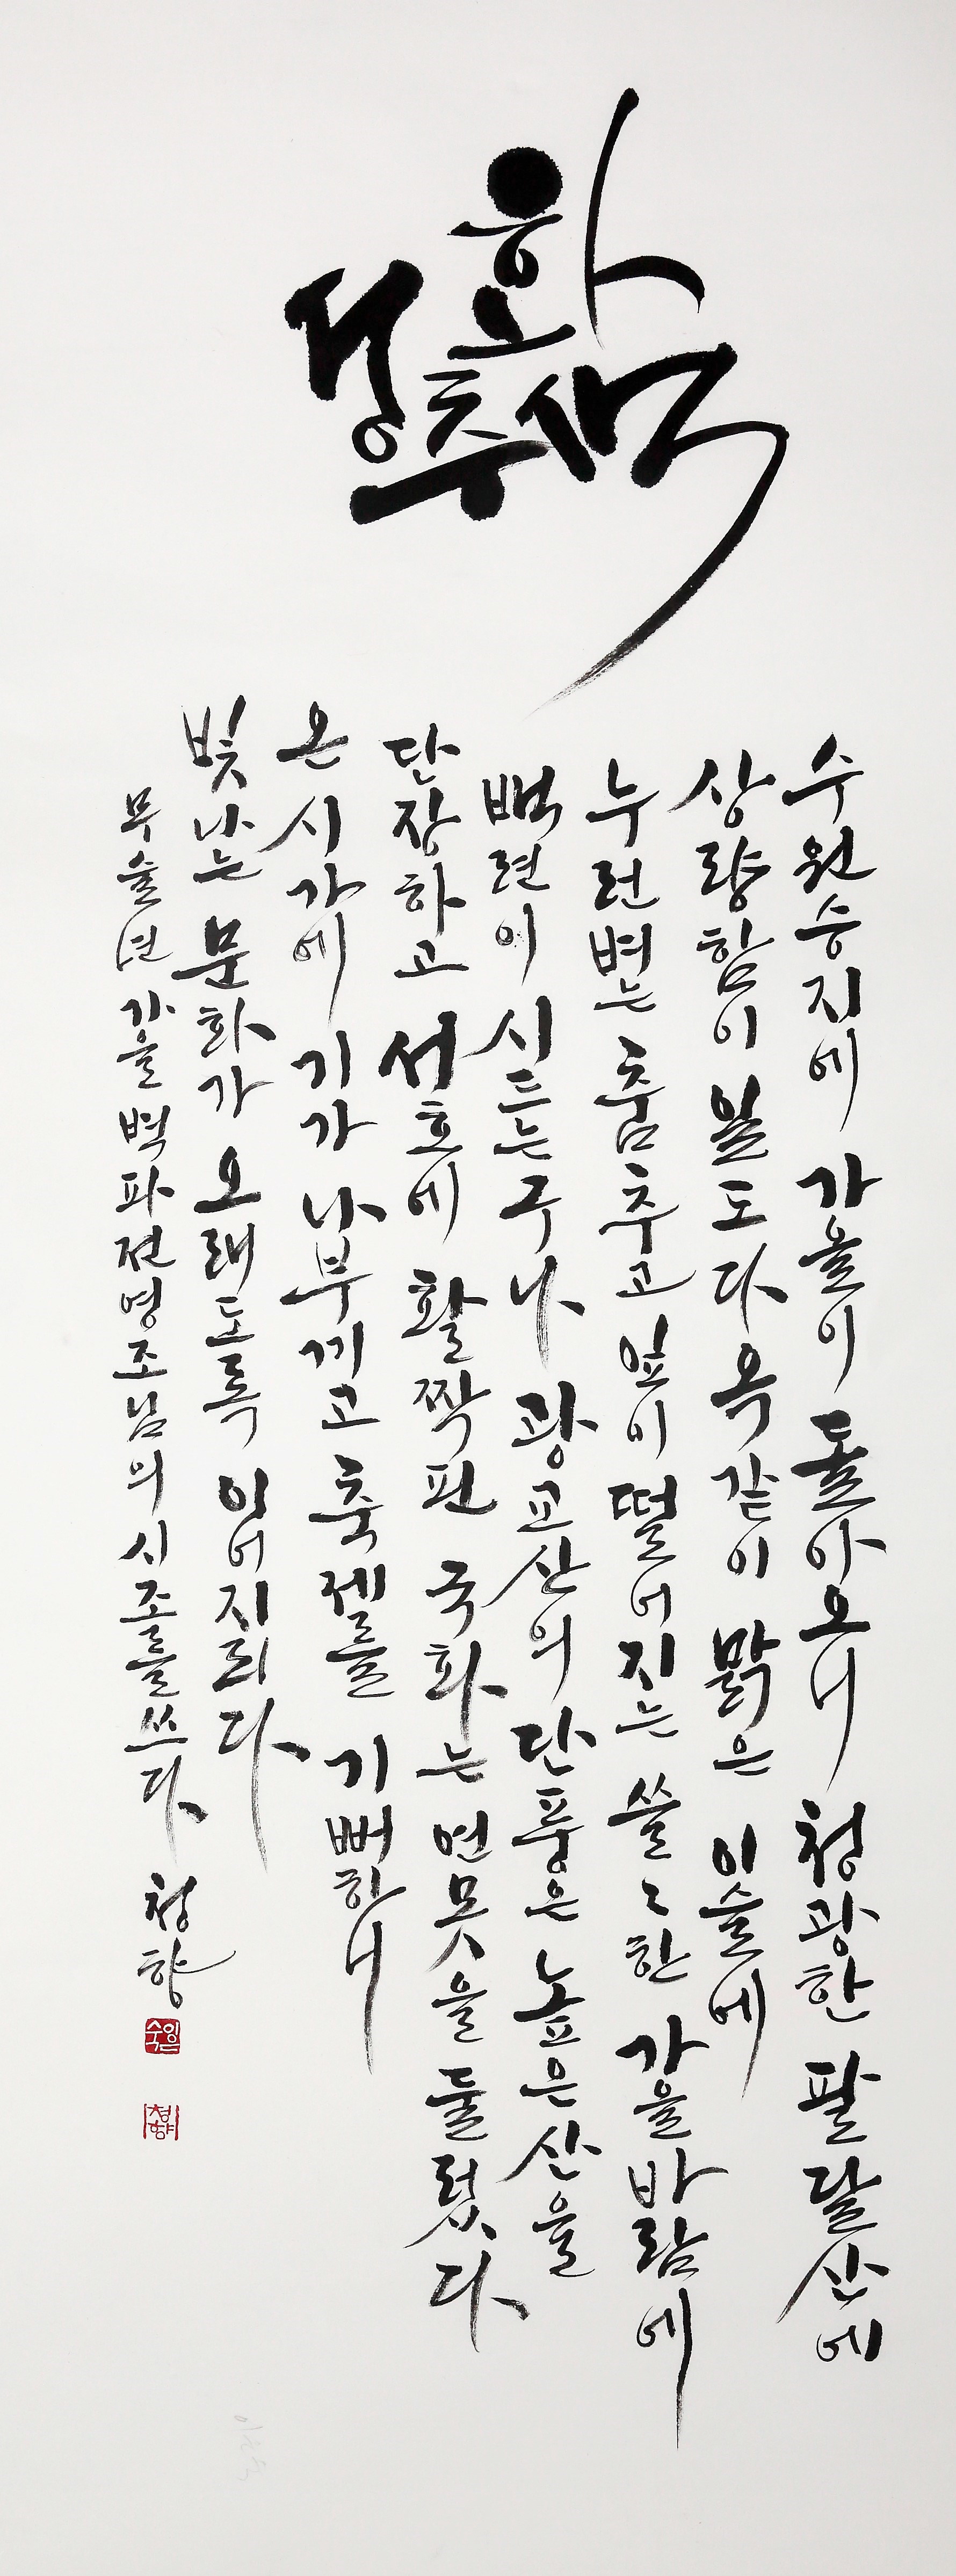 화성추색
수원승지에 가을이 돌아오니 청광한 팔달산에
상량함이 일도다 옥같이 맑은 이슬에
누런벼는 춤추고 잎이 떨어지는 쓸〻한 가을바람에
백련이 시드는구나 광교산의 단풍은 높은산을
단장하고 서호에 활짝핀 국화는 연못을 둘렀다
온 시가에 기가 나부끼고 축제를 기뻐하니
빛나는 문화가 오래도록 이어지리다
무술년 가을 백파 전영조님의 시조를 쓰다 청향
청향